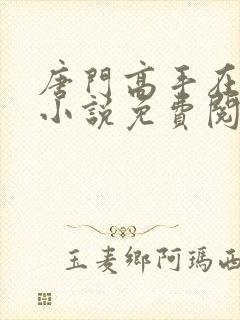 唐門高手在
小說免費閱
玉麦鄉阿瑪西